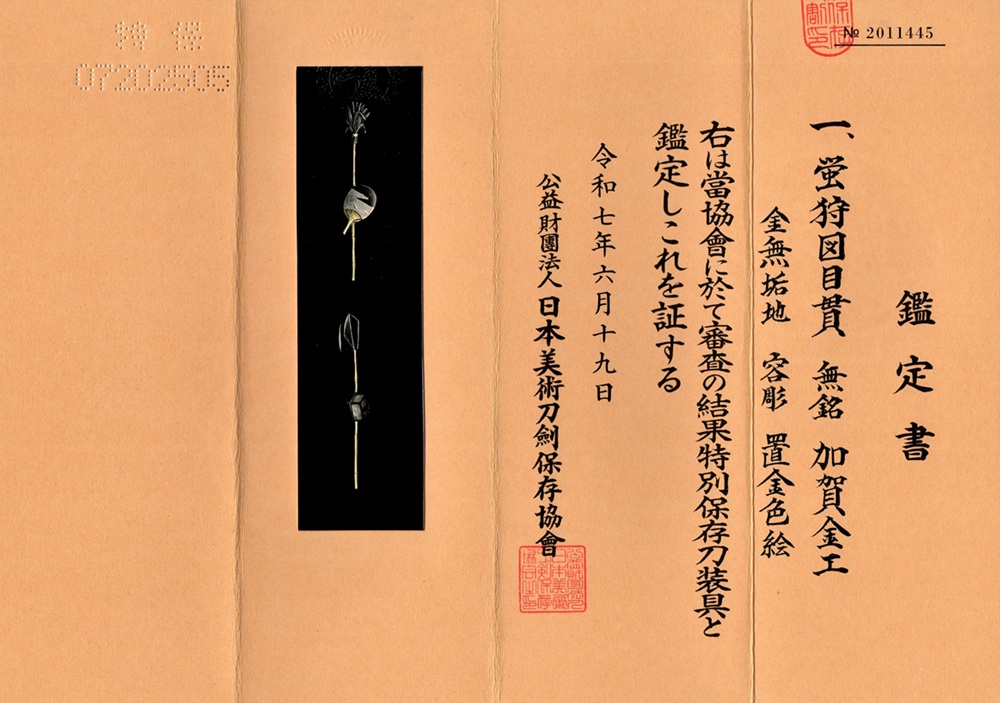 № 2011445
鑑定書
一、蛍狩図目貫 無銘 加賀金工
金無垢地 容彫 置金色絵
右は當協會に於て審査の結果特別保存刀装具と
鑑定しこれを証する
令和七年六月十九日
公益財團法人 日本美術刀劍保存協會
特保
07202505